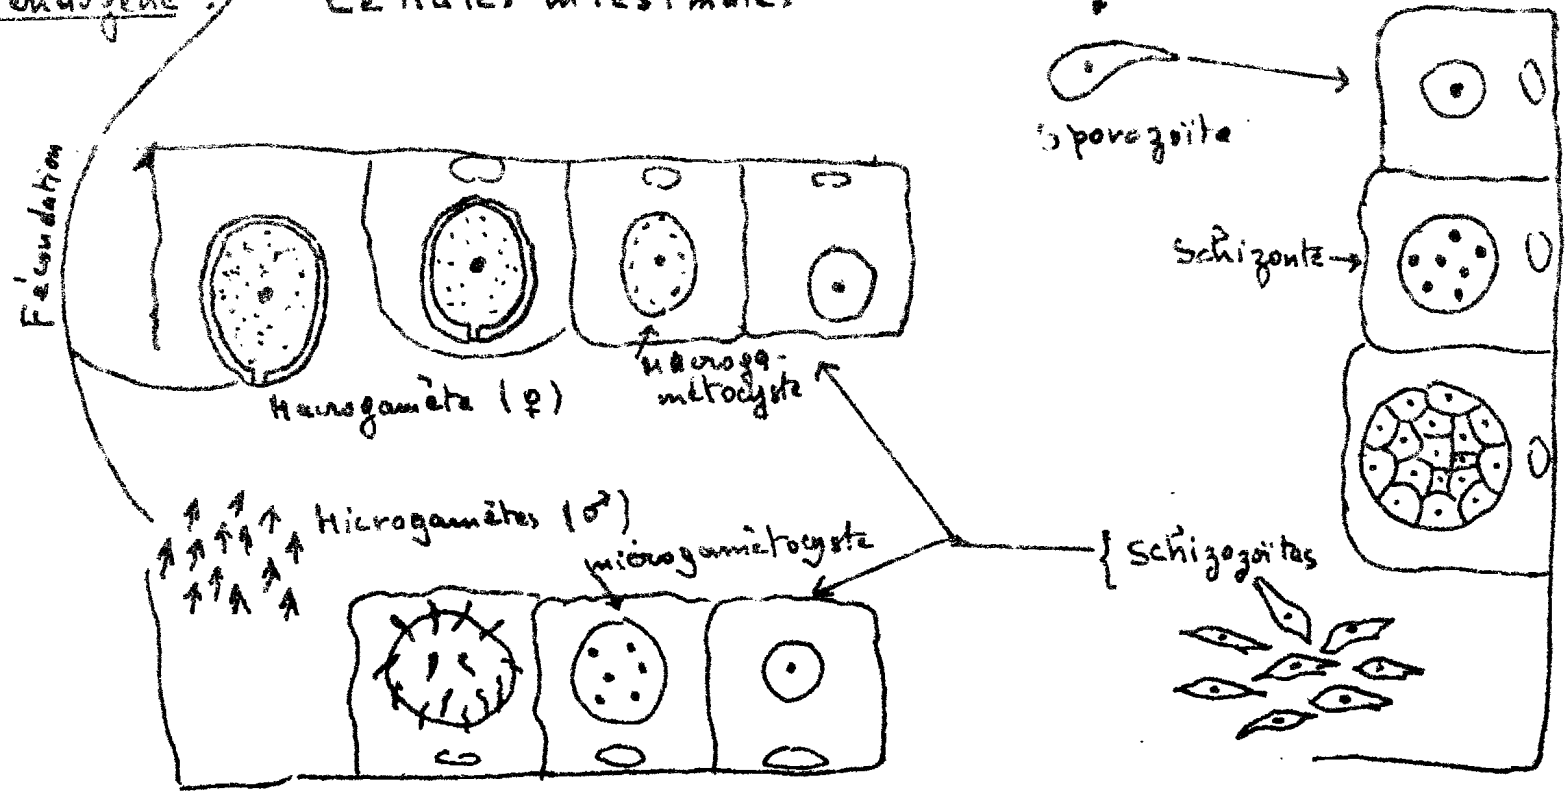 endogène : Cellules intestinales
Sporozoïte
Fécondation
Schizonte
Macroga-
métocyste
Macrogamète (♀)
Microgamètes (♂)
microgamètocyste
{ Schizozoïtes